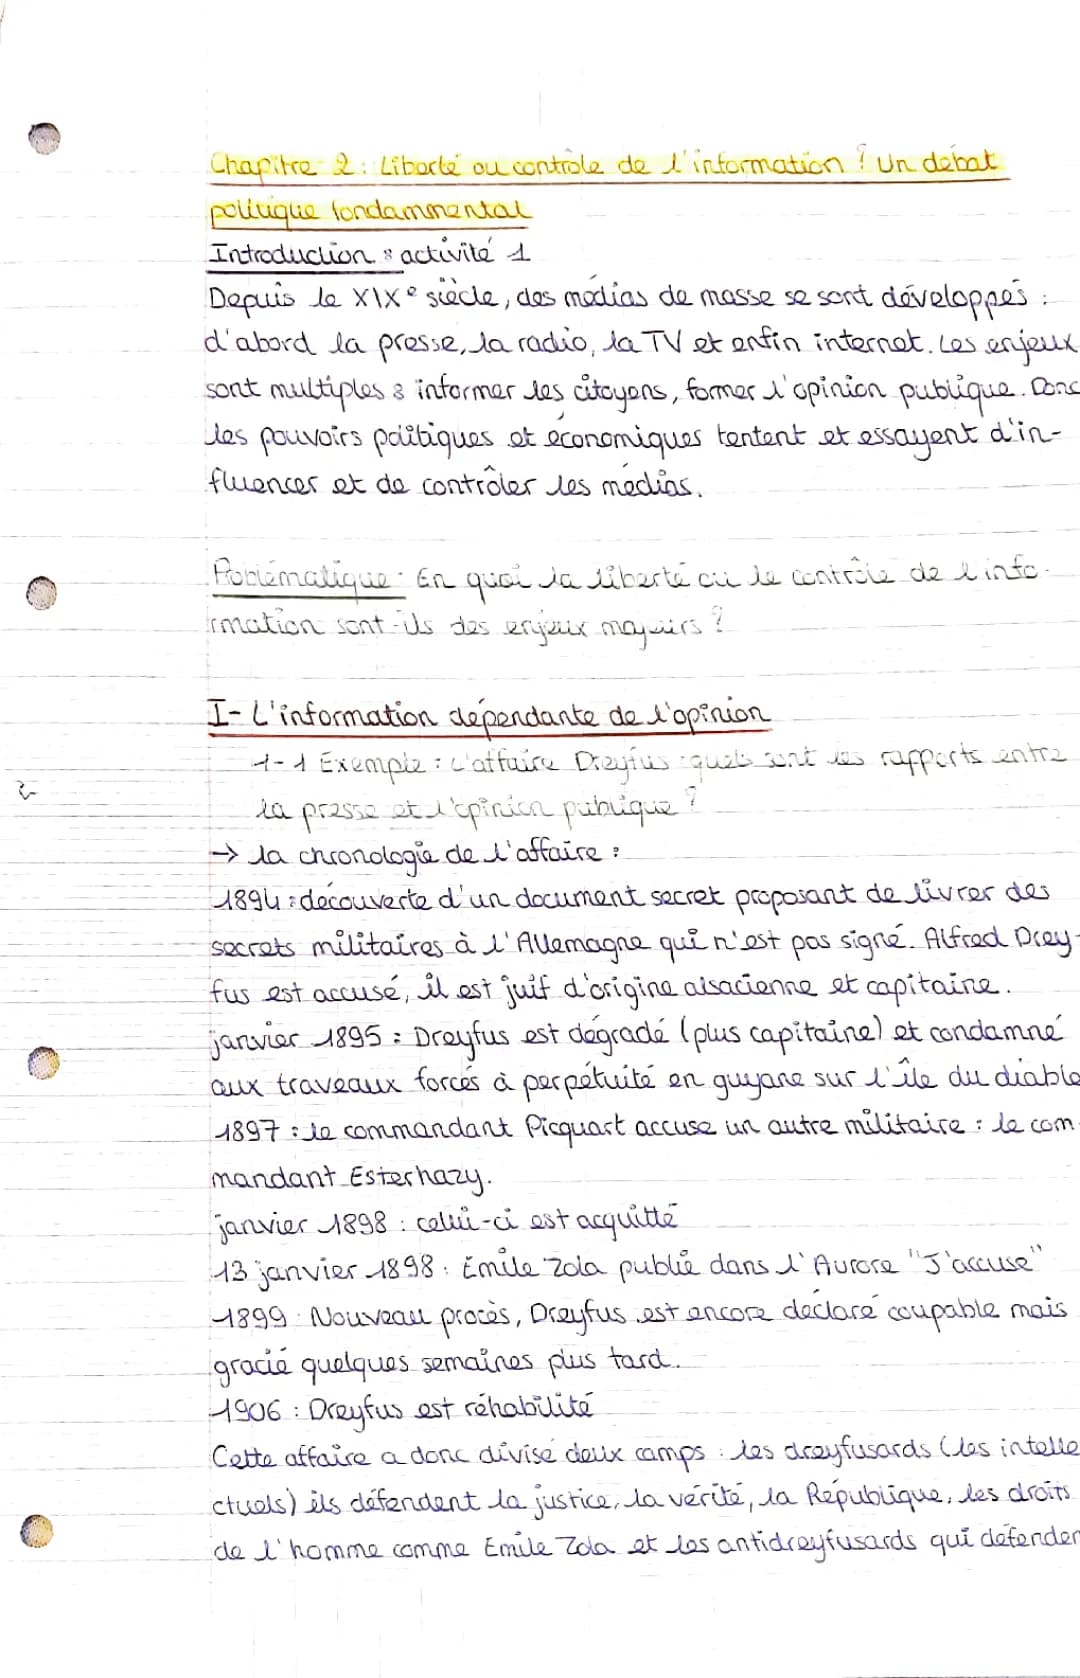 Chapitre 2 : Liberté ou contrôle de l'information ? Un débat
politique fondammental
Introduction : activité 1
Depuis le XIXe siècle, des médias de masse se sont développés :
d'abord la presse, la radio, la TV et enfin internet. Les enjeux
sont multiples : informer les citoyens, former l'opinion publique. Donc
les pouvoirs politiques et économiques tentent et essayent d'in-
fluencer et de contrôler les médias.
Problématique : En quoi la liberté ou le contrôle de l'info-
rmation sont-ils des enjeux majeurs ?
I- L'information dépendante de l'opinion
1-1 Exemple : L'affaire Dreyfus : quels sont les rapports entre
la presse et l'opinion publique ?
→ la chronologie de l'affaire :
1894 : découverte d'un document secret proposant de livrer des
secrets militaires à l'Allemagne qui n'est pas signé. Alfred Drey-
fus est accusé, il est juif d'origine alsacienne et capitaine.
janvier 1895 : Dreyfus est dégradé (plus capitaine) et condamné
aux traveaux forcés à perpétuité en guyane sur l'île du diable
1897 : le commandant Picquart accuse un autre militaire : le com-
mandant Esterhazy.
janvier 1898 : celui-ci est acquitté
13 janvier 1898 : Émile Zola publie dans l'Aurore "J'accuse"
1899 : Nouveau procès, Dreyfus est encore déclaré coupable mais
gracié quelques semaines plus tard.
1906 : Dreyfus est réhabilité
Cette affaire a donc divisé deux camps : les dreyfusards (les intelle
ctuels) ils défendent la justice, la vérité, la République, les droits
de l'homme comme Emile Zola et les antidreyfusards qui défenden